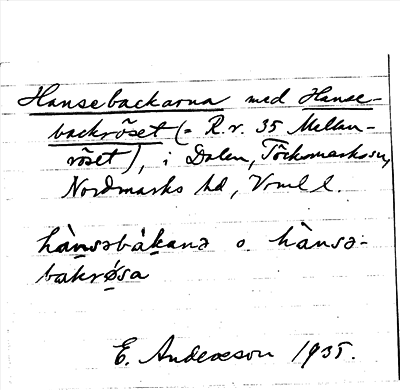 Hansebackarna med Hanse-
backröset (= R.r. 35 Mellan-
röset), i Dalen, Töcksmarks sn,
Nordmarks hd, Vrml l.
hànsəbàkana o. hànsə-
bakrǿsa
E. Andersson 1935.